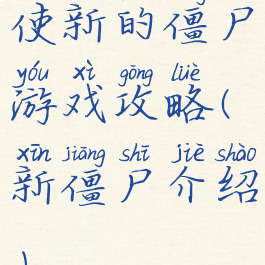 使新的僵尸
yóu xì gōng lüè
游戏攻略(
xīn jiāng shī jiè shào
新僵尸介绍
)